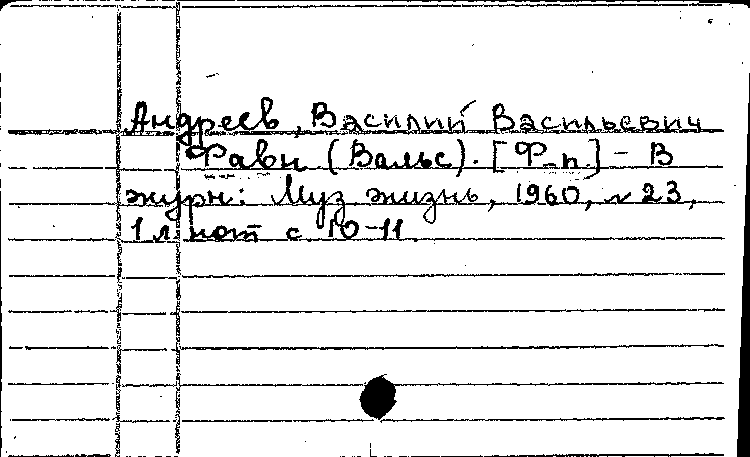 Андреев, Василий Васильевич
Фавн (Вальс). [Ф-п.] – В
журн: Муз. жизнь, 1960, № 23,
1 л. нот с. 10–11.